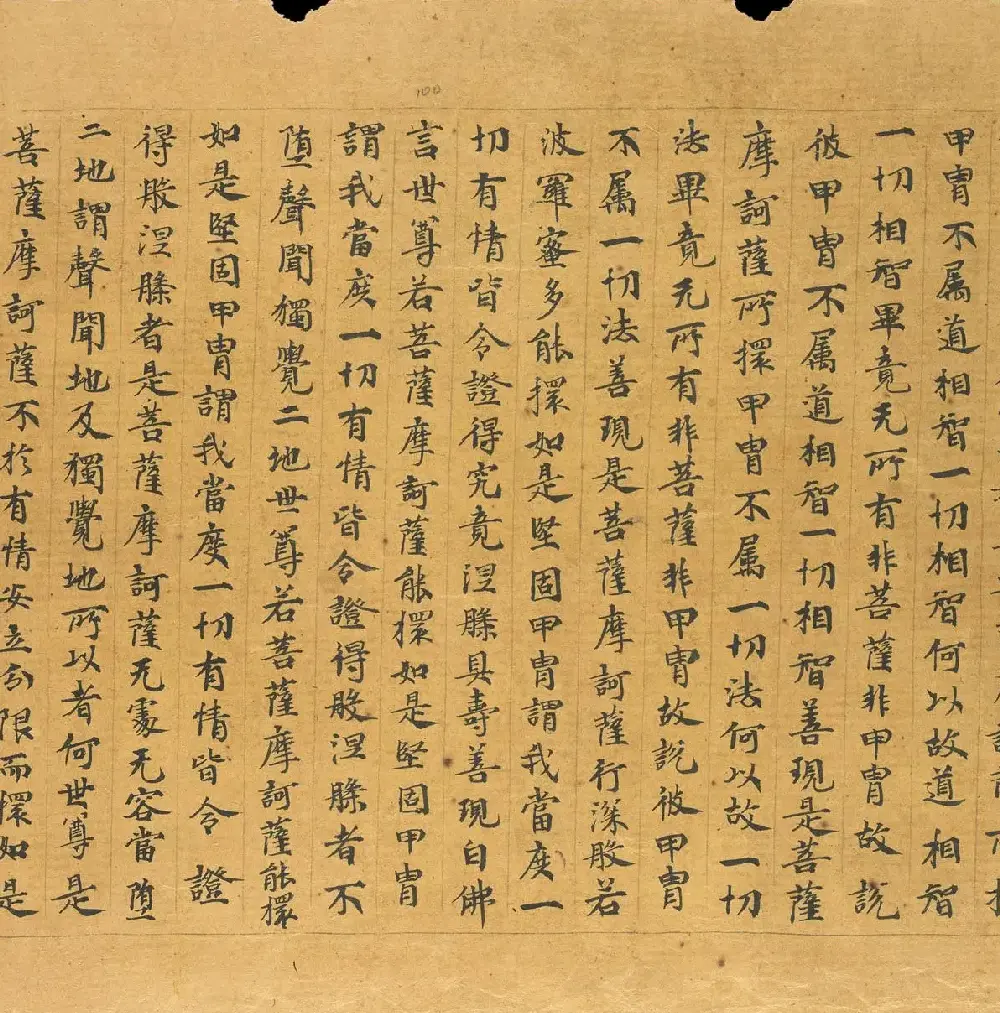 甲胄不属道相智一切相智何以故道相智
一切相智畢竟无所有非菩薩非甲胄故說
彼甲胄不属道相智一切相智善現是菩薩
摩訶薩所擐甲胄不属一切法何以故一切
法畢竟无所有非菩薩非甲胄故說彼甲胄
不属一切法善現是菩薩摩訶薩行深般若
波羅蜜多能擐如是堅固甲胄謂我當度一
切有情皆令證得究竟涅槃具壽善現白佛
言世尊若菩薩摩訶薩能擐如是堅固甲胄
謂我當度一切有情皆令證得般涅槃者不
堕聲聞獨覺二地世尊若菩薩摩訶薩能擐
如是堅固甲胄謂我當度一切有情皆令證
得般涅槃者是菩薩摩訶薩无處无容當堕
二地謂聲聞地及獨覺地所以者何世尊是
菩薩摩訶薩不於有情安立分限而擐如是